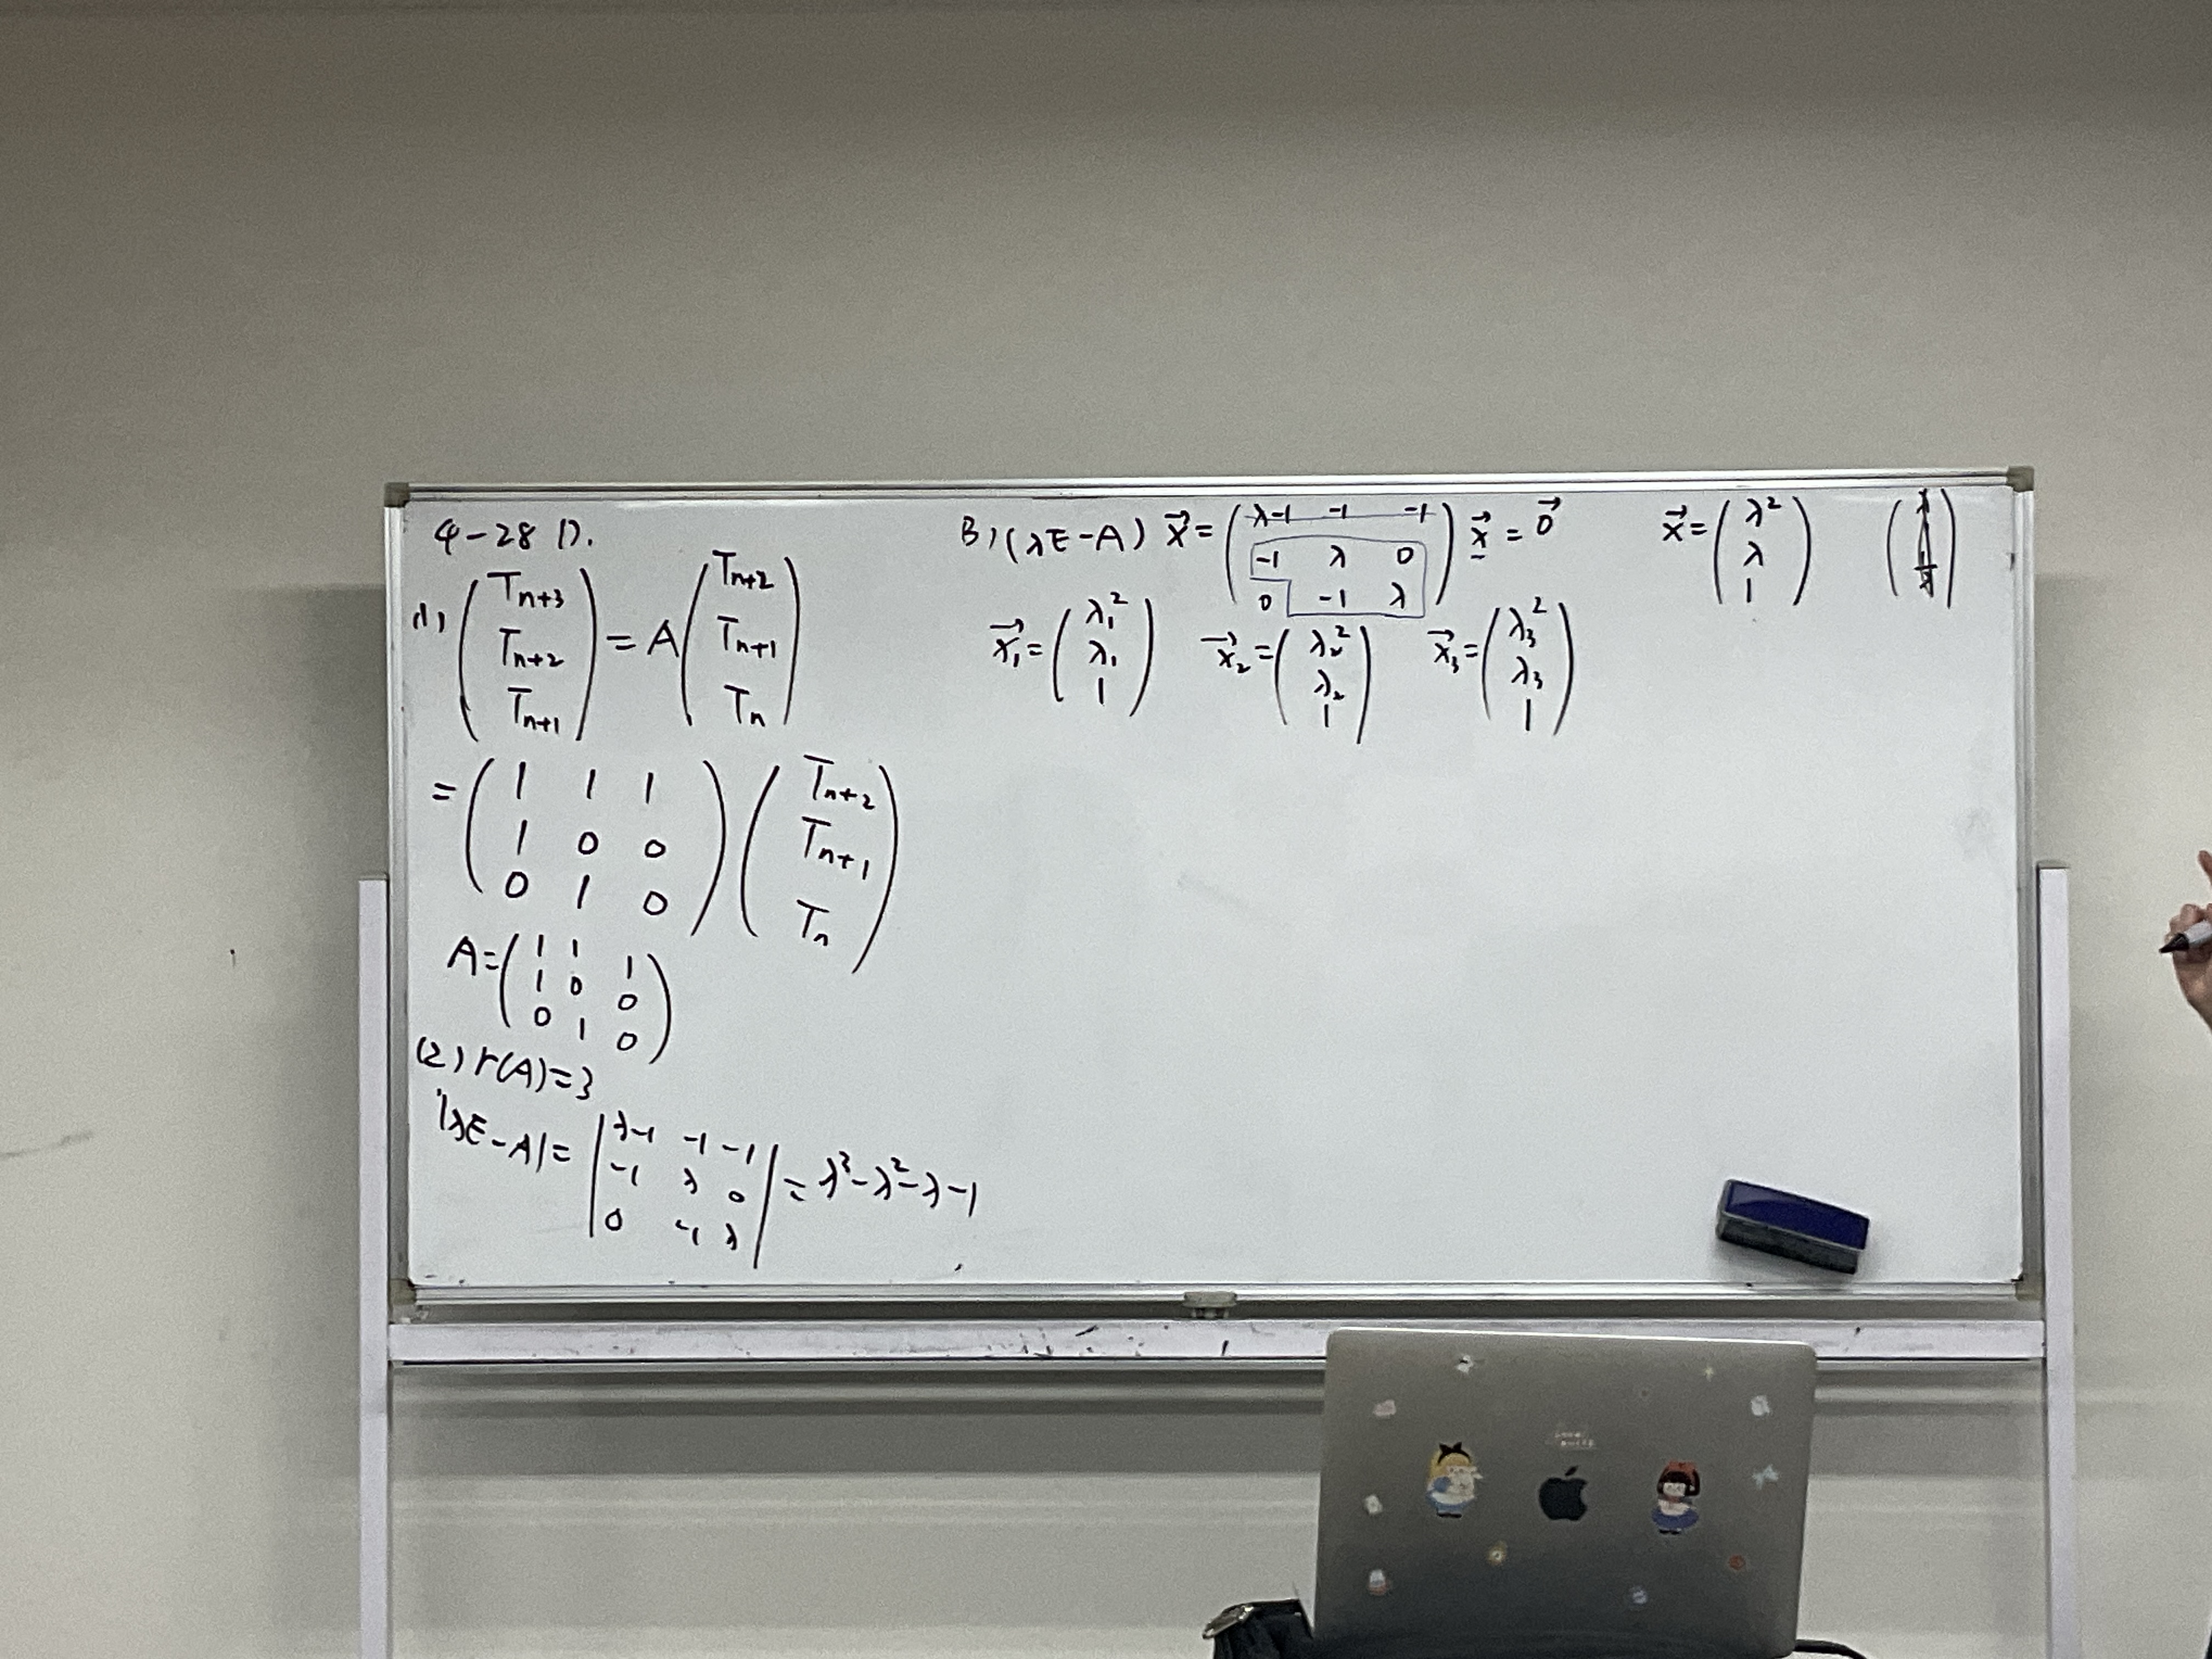 4-28 D.
(1) (T_{n+3} T_{n+2} T_{n+1}) = A (T_{n+2} T_{n+1} T_n)
= (1 1 1
1 0 0
0 1 0) (T_{n+2} T_{n+1} T_n)
A = (1 1 1
1 0 0
0 1 0)
(2) r(A)=3
|λE-A| = |λ-1 -1 -1
-1 λ 0
0 -1 λ| = λ³-λ²-λ-1
3) (λE-A) x⃗ = (λ-1 -1 -1
-1 λ 0
0 -1 λ) x⃗ = 0⃗
x⃗ = (λ² λ 1)
x⃗₁ = (λ₁² λ₁ 1) x⃗₂ = (λ₂² λ₂ 1) x⃗₃ = (λ₃² λ₃ 1)